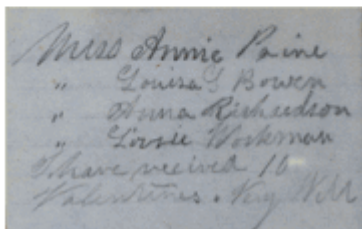 Miss Annie Paine
" Louisa S Bowen
" Anna Richardson
" Louie Workman
I have received 10
Valentines. Very Well